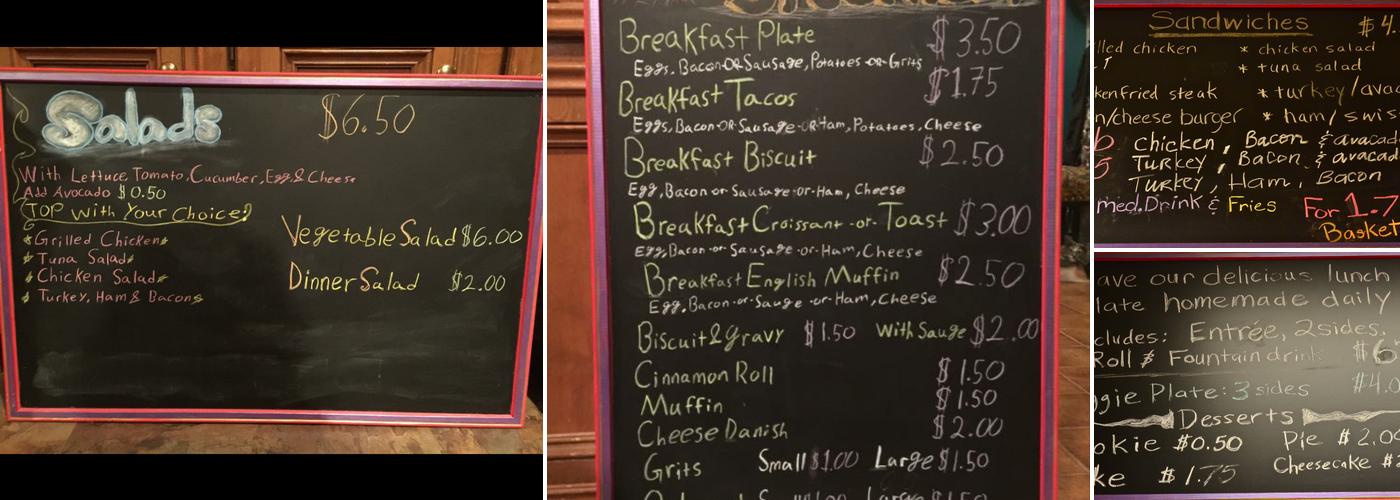 Salads $6.50
With Lettuce, Tomato, Cucumber, Egg & Cheese
Add Avocado $0.50
TOP With Your Choice!
*Grilled Chicken*
* Tuna Salad*
* Chicken Salad*
* Turkey, Ham & Bacon*
Vegetable Salad $6.00
Dinner Salad $2.00
Breakfast Plate $3.50
Eggs, Bacon-OR-Sausage, Potatoes-or-Grits
Breakfast Tacos $1.75
Eggs, Bacon-OR-Sausage-OR-Ham, Potatoes, Cheese
Breakfast Biscuit $2.50
Egg, Bacon or Sausage-or-Ham, Cheese
Breakfast Croissant -or- Toast $3.00
Egg, Bacon-or-Sausage-or-Ham, Cheese
Breakfast English Muffin $2.50
Egg, Bacon-or-Sauge-or-Ham, Cheese
Biscuit & gravy $1.50 With Sauge $2.00
Cinnamon Roll $1.50
Muffin $1.50
Cheese Danish $2.00
Grits Small $1.00 Large $1.50
Sandwiches $4.
lled chicken * chicken salad
T * tuna salad
kenfried steak * turkey/avoca
n/cheese burger * ham/swis
chicken, Bacon & avacad
5 Turkey, Bacon & avacad
Turkey, Ham, Bacon
med. Drink & Fries For 1.7
Basket
ave our delicious lunch
late homemade daily
cludes: Entrée, 2 sides,
Roll & Fountain drink $6
gie Plate: 3 sides $4.0
Desserts
okie $0.50 Pie $2.00
ke $1.75 Cheesecake $